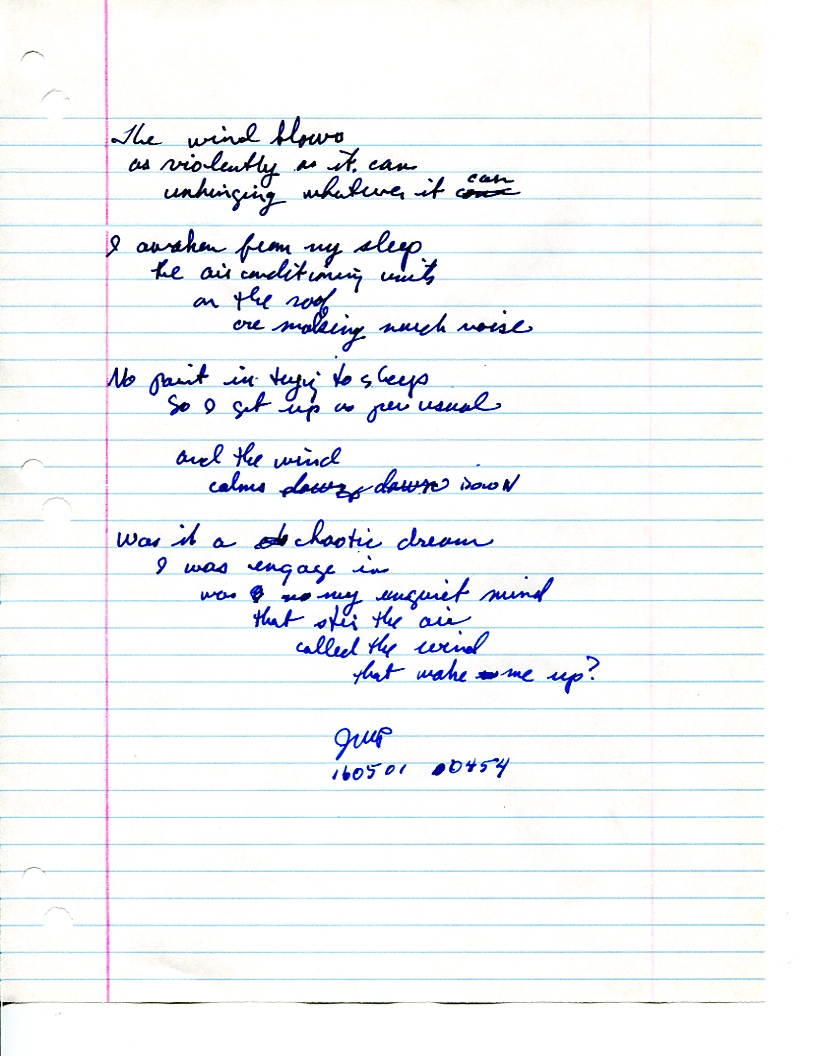 The wind blows
as violently as it can
unhinging whatever it can
I awaken from my sleep
the air conditioning units
on the roof
are making much noise
No point in trying to sleep
So I get up as per usual
and the wind
calms down down DOWN
Was it a chaotic dream
I was engage in
was my unquiet mind
that stir the air
called the wind
that wake me up?
JMP
160501 0454